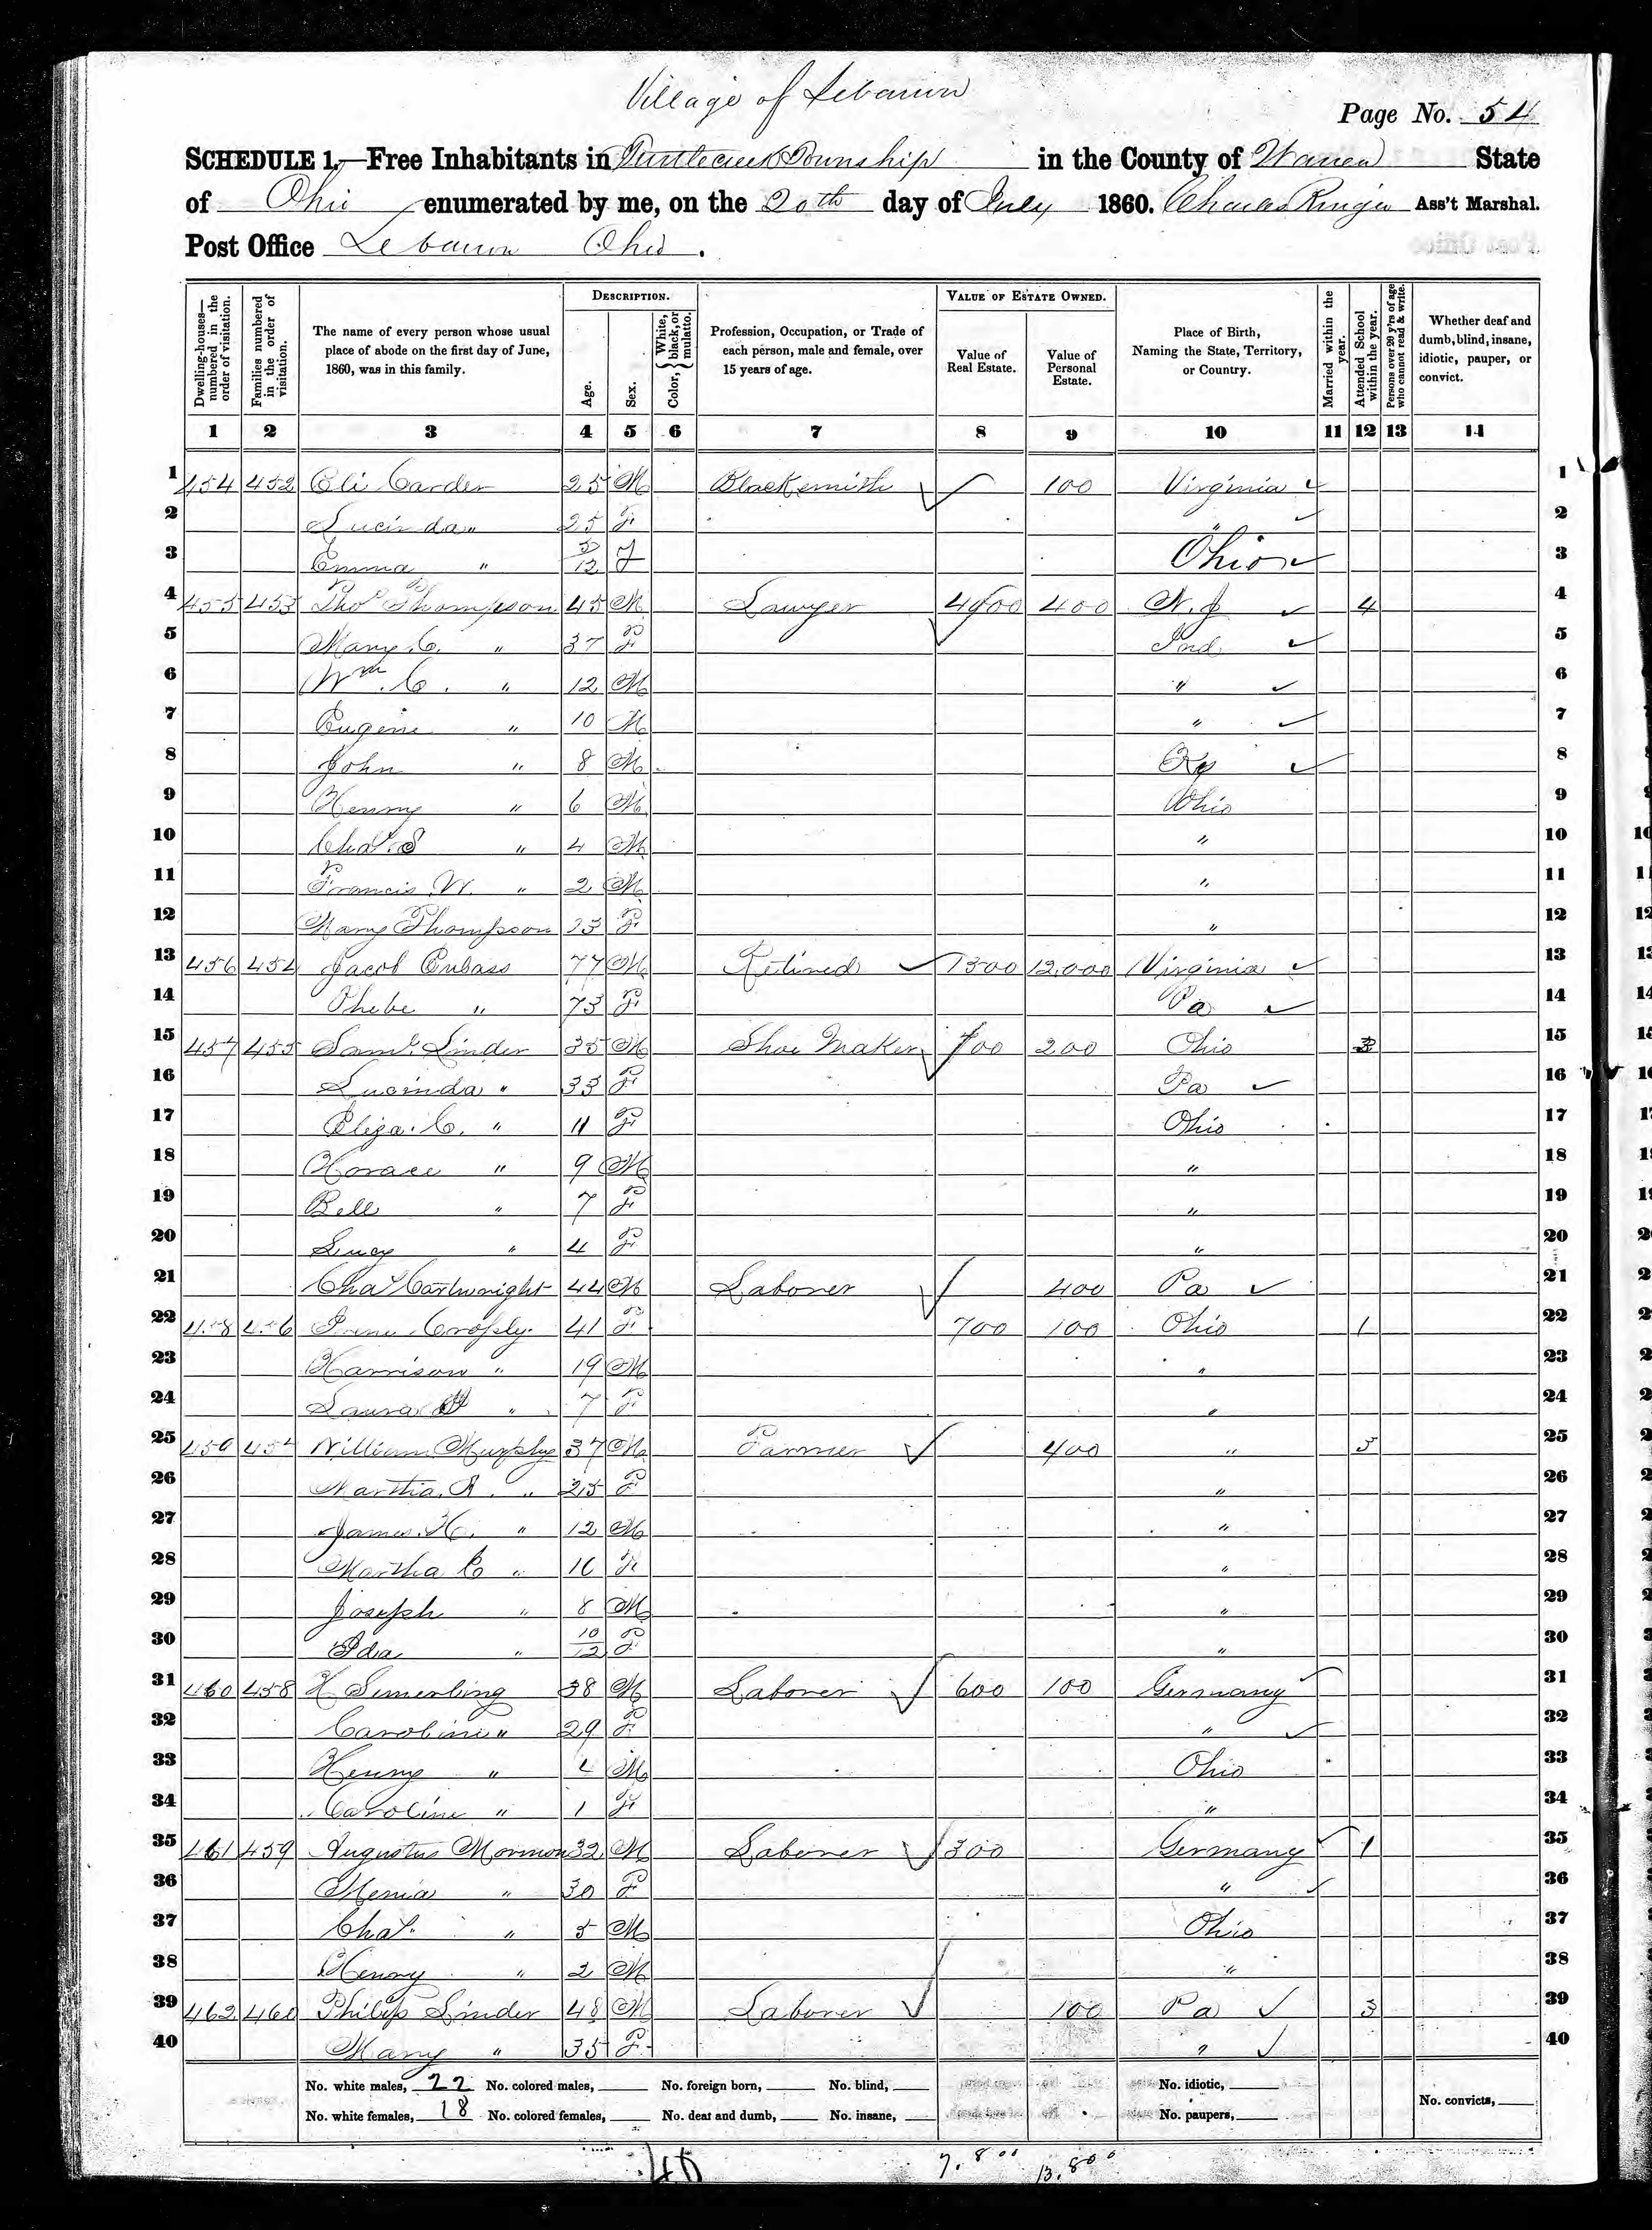 Village of Lebanon
Page No. 54
SCHEDULE 1.—Free Inhabitants in Turtlecreek Township in the County of Warren State
of Ohio enumerated by me, on the 20th day of July 1860. Charles Ass't Marshal.
Post Office Lebanon Ohio.
Dwelling-houses—numbered in the order of visitation. Families numbered in the order of visitation. The name of every person whose usual place of abode on the first day of June, 1860, was in this family. DESCRIPTION. Age. Sex. Color, { White, black, or mulatto. Profession, Occupation, or Trade of each person, male and female, over 15 years of age. VALUE OF ESTATE OWNED. Value of Real Estate. Value of Personal Estate. Place of Birth, Naming the State, Territory, or Country. Married within the year. Attended School within the year. Persons over 20 y'rs of age who cannot read & write. Whether deaf and dumb, blind, insane, idiotic, pauper, or convict.
1 2 3 4 5 6 7 8 9 10 11 12 13 14
1 454 452 Eli Carder 25 M Blacksmith 100 Virginia 1
2 Lucinda " 25 F " 2
3 Emma " 5/12 F Ohio 3
4 455 453 Thos Thompson 45 M Lawyer 4000 400 N.J 4 4
5 Mary C. " 37 F Ind 5
6 Wm. C. " 12 M " 6
7 Eugene " 10 M " 7
8 John " 8 M Ky 8
9 Henry " 6 M Ohio 9
10 Chas S " 4 M " 10
11 Francis W. " 2 M " 11
12 Mary Thompson F " 12
13 456 454 Jacob 77 M Retired 1300 12,000 Virginia 13
14 Phebe " 73 F Pa 14
15 457 455 Saml. Linder 35 M Shoe Maker 700 200 Ohio 15
16 Lucinda " 33 F Pa 16
17 Eliza. C. " 11 F Ohio 17
18 Horace " 9 M " 18
19 Bell " 7 F " 19
20 Lucy " 4 F " 20
21 Chas Cartwright 44 M Laborer 400 Pa 21
22 458 456 Irene Crosply 41 F 700 100 Ohio 1 22
23 Harrison " 19 M " 23
24 Laura " 7 F " 24
25 459 457 William Murphy 37 M Farmer 400 " 5 25
26 Martha A. " 25 F " 26
27 James H. " 12 M " 27
28 Martha E " 10 F " 28
29 Joseph " 8 M " 29
30 Ida " 10/12 F " 30
31 460 458 H Simerling 38 M Laborer 600 100 Germany 31
32 Caroline " 29 F " 32
33 Henry " 4 M Ohio 33
34 Caroline " 1 F " 34
35 461 459 Augustus Mormon 32 M Laborer 300 Germany 1 35
36 Menia " 30 F " 36
37 Chas. " 5 M Ohio 37
38 Henry " 2 M " 38
39 462 460 Philip Linder 48 M Laborer 100 Pa 3 39
40 Mary " 35 F " 40
No. white males, 22 No. colored males, No. foreign born, No. blind, No. idiotic,
No. white females, 18 No. colored females, No. deaf and dumb, No. insane, No. paupers, No. convicts,
7,800 13,800